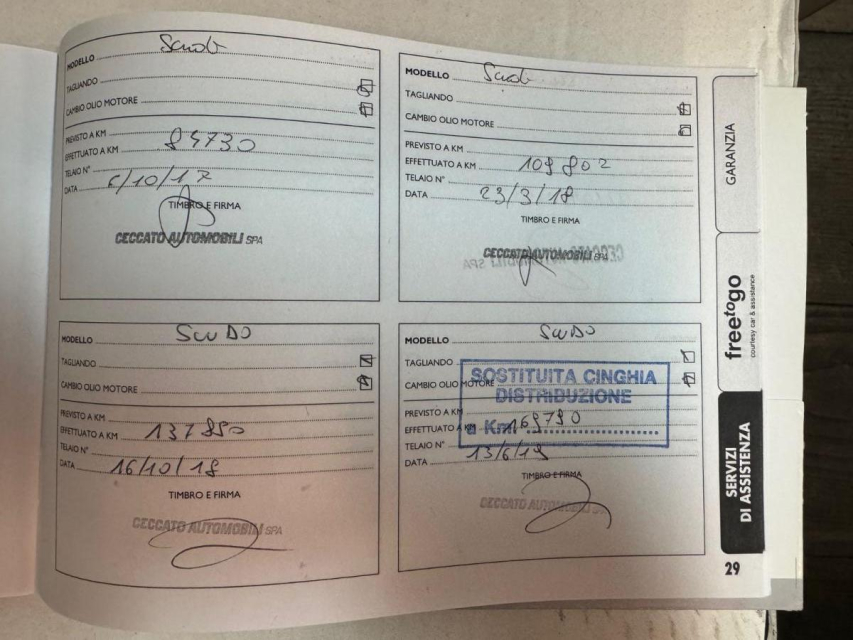 MODELLO Scudo
TAGLIANDO
CAMBIO OLIO MOTORE
PREVISTO A KM
EFFETTUATO A KM
TELAIO N°
DATA 6/10/17
TIMBRO E FIRMA
CECCATO AUTOMOBILI SPA
MODELLO Scudo
TAGLIANDO
CAMBIO OLIO MOTORE
PREVISTO A KM
EFFETTUATO A KM 109802
TELAIO N°
DATA 23/3/18
TIMBRO E FIRMA
CECCATO AUTOMOBILI SPA
MODELLO SCUDO
TAGLIANDO
CAMBIO OLIO MOTORE
PREVISTO A KM
EFFETTUATO A KM
TELAIO N°
DATA 16/10/18
TIMBRO E FIRMA
CECCATO AUTOMOBILI SPA
MODELLO SCUDO
TAGLIANDO
CAMBIO OLIO MOTORE
SOSTITUITA CINGHIA
DISTRIBUZIONE
PREVISTO A KM
EFFETTUATO A KM
a Km. 169790
TELAIO N°
DATA 13/6/19
TIMBRO E FIRMA
CECCATO AUTOMOBILI SPA
GARANZIA
freetogo
courtesy car & assistance
SERVIZI
DI ASSISTENZA
29